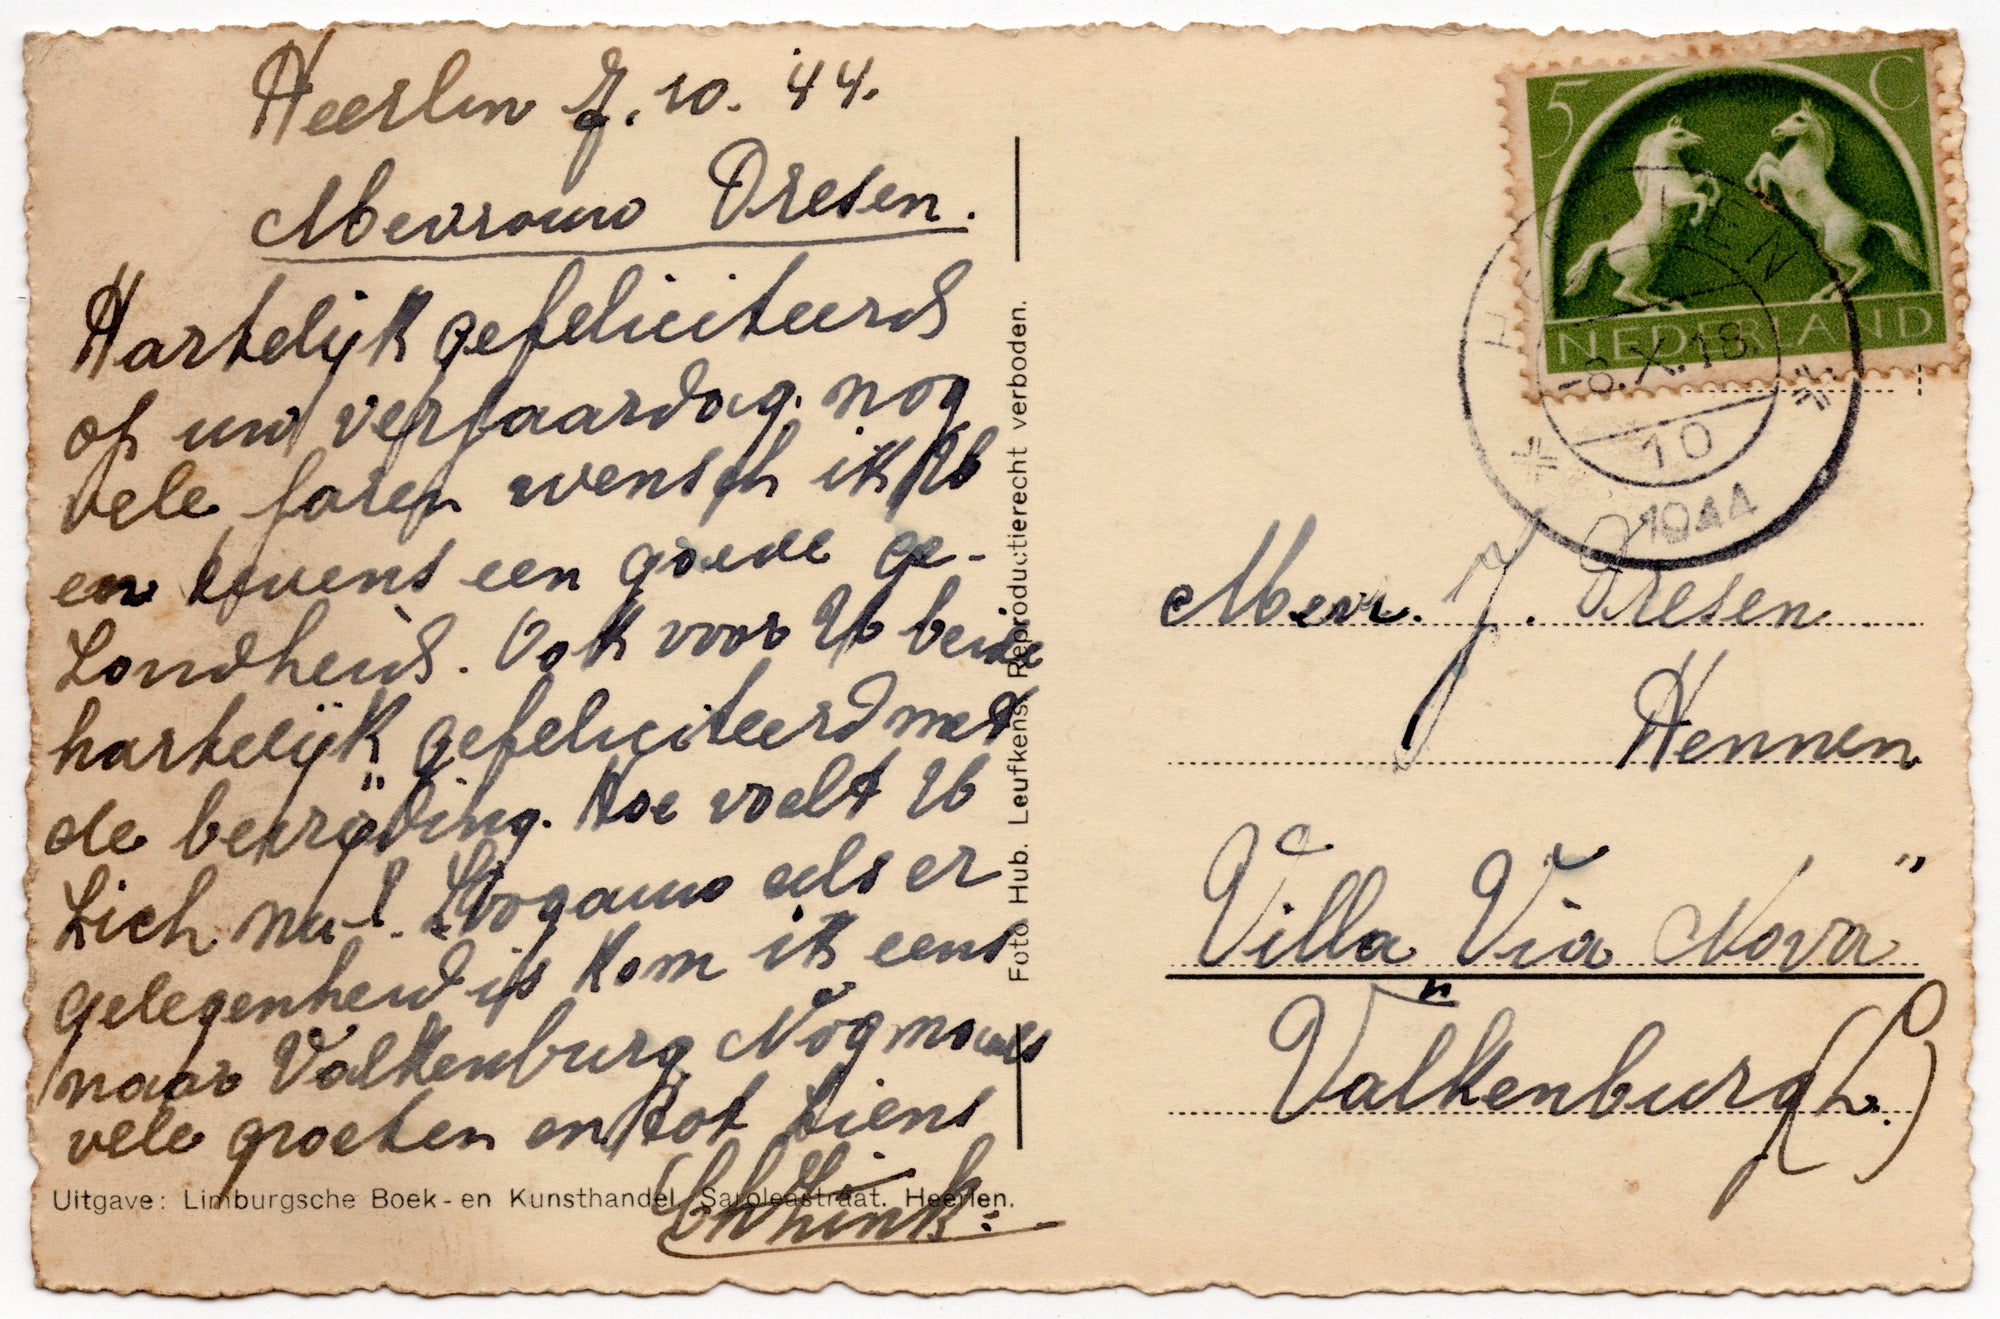 Heerlen 7.10.'44.
Mevrouw Dresen.
Hartelijk gefeliciteerd
op uw verjaardag. nog
vele jaren wensch ik U
en tevens een goede ge-
zondheid. Ook voor U beide
hartelijk gefeliciteerd met
de bevrijding. Hoe voelt U
zich nu!. Zoogauw als er
gelegenheid is kom ik eens
naar Valkenburg. Nogmaals
vele groeten en tot ziens
Uitgave: Limburgsche Boek- en Kunsthandel, Saroleastraat. Heerlen.
Foto Hub. Leufkens. Reproductierecht verboden.
5 C
NEDERLAND
-8.X.18.
10
1944
Mevr. J. Dresen
Hennen
Villa Via Nova"
"
Valkenburg (L.)